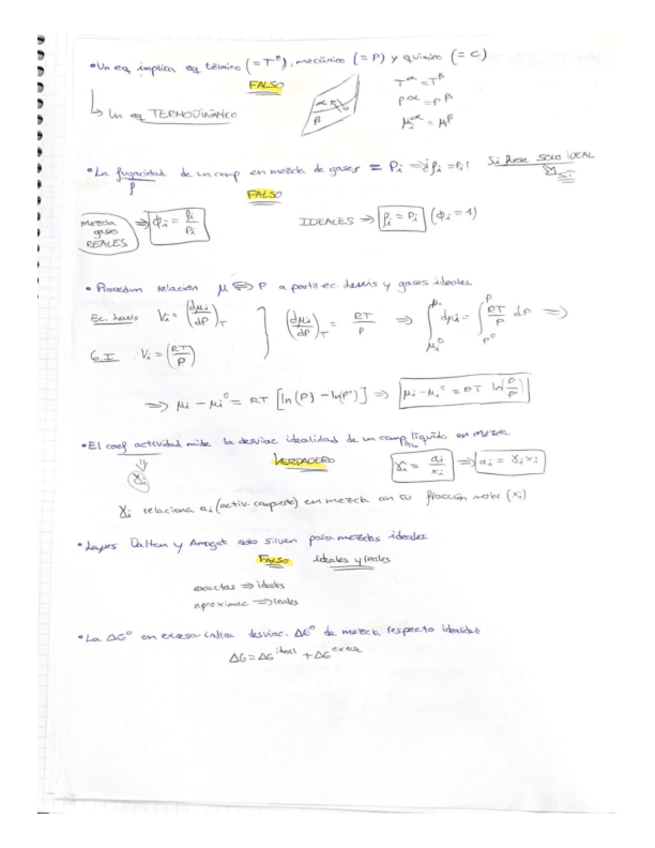 • Un eq implica eq térmico (=Tº), mecánico (= P) y químico (= C)
FALSO
↳ Un eq TERMODINÁMICO
α
β
T^α = T^β
P^α = P^β
μ_i^α = μ^β
• La fugacidad de un comp en mezcla de gases = Pi ⇒ ¿fi = Pi? Si fuese SOLO IDEAL
f
SI
FALSO
mezcla gases REALES ⇒ ϕi = fi/Pi
IDEALES ⇒ fi = Pi (ϕi = 1)
• Procedim relación μ ⇔ P a partir ec. Lewis y gases ideales
Ec. Lewis Vi = (dμi/dP)_T
(dμi/dP)_T = RT/P ⇒ ∫_{μi^0}^{μi} dμi = ∫_{P^0}^{P} RT/P dP ⇒
G.I Vi = (RT/P)
⇒ μi − μi^0 = RT [ln(P) − ln(P^0)] ⇒ μi − μi^0 = RT ln(P/P^0)
• El coef actividad mide la desviac idealidad de un comp líquido en mezcla
γi
VERDADERO
γi = ai/xi ⇒ ai = γi xi
γi relaciona ai (activ. compuesto) en mezcla con su fracción molar (xi)
• Leyes Dalton y Amagat solo sirven para mezclas ideales.
FALSO ideales y reales
exactas ⇒ ideales
aproximac ⇒ reales
• La ΔGº en exceso indica desviac. ΔGº de mezcla respecto idealidad
ΔG = ΔG^ideal + ΔG^exce